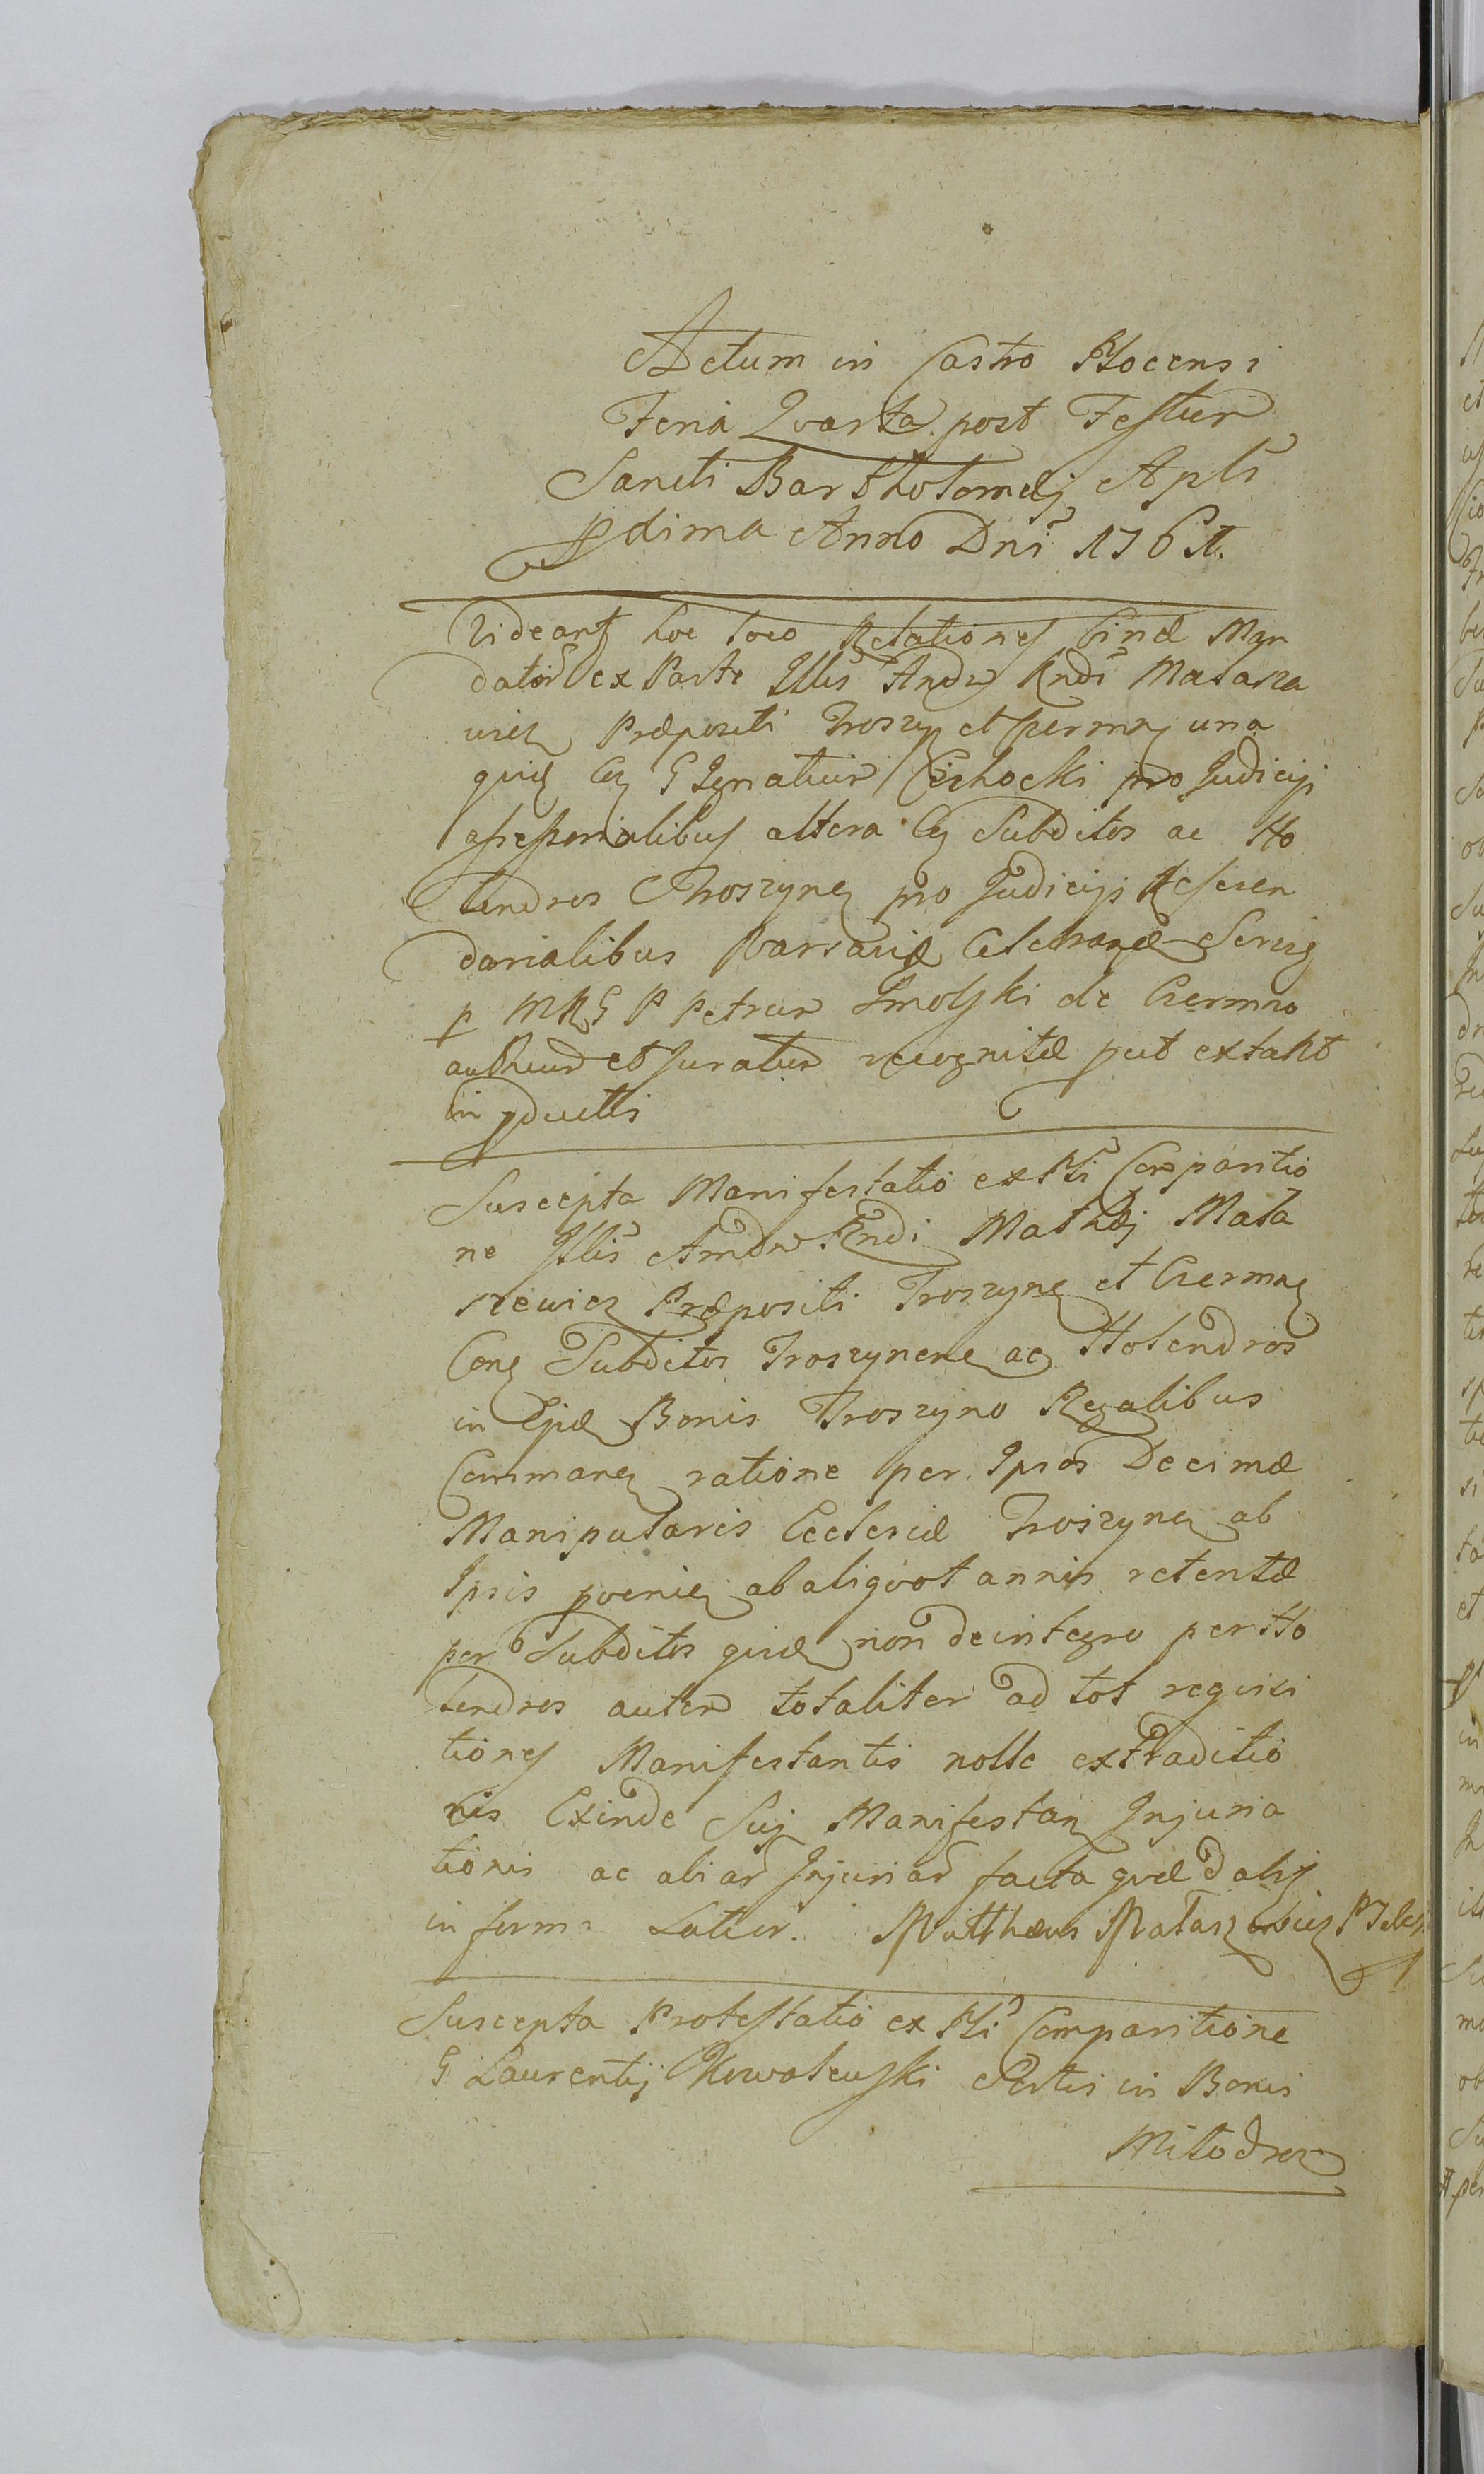 Actum in Castro Plocensi
Feria Qvarta post Festum
Sancti Bartholomæj Apli
pdima Anno Dni 1761.
Videant hoc loco Relationes binæ Man
dator ex Parte Illis Andr Rndi Matasza
wicz Præpositi Troszyn et Czermn una
quid Cn G Ignatium Cichocki pro Judicijs
assessorialibus altera Cn Subditos ac Ho
lendros Troszynen pro Judicijs Referen
darialibus Varsaviæ Celebran Servi
p MRG P Petrum Smolski de Czermno
authen et Juratum recognitæ put extant
in pductis
Suscepta Manifestatio ex Pli Comparitio
ne Illis Amdr Rndi Mathæj Mata
szewicz Præpositi Troszyn et Czermn
Con Subditos Troszynen ac Holendros
in Ejsd Bonis Troszyno Regalibus
Comman ratione per Ipsos Decimæ
Manipularis Ecclesiæ Troszynen ab
Ipsis pvenien ab aliqvot annis retentæ
per Subditos quid non deintegro per Ho
lendros autem totaliter ad tot reqvisi
tiones Manifestantis nolle extraditio
nis Exinde Suj Manifestan Injuria
tionis ac aliar Injuriar facta qvæ d alijs
in forma Latior. Matthæus Mataszewicz
Suscepta Protestatio ex Pli Comparitione
G Laurentij Kowalewski Partis in Bonis
Miłodroz